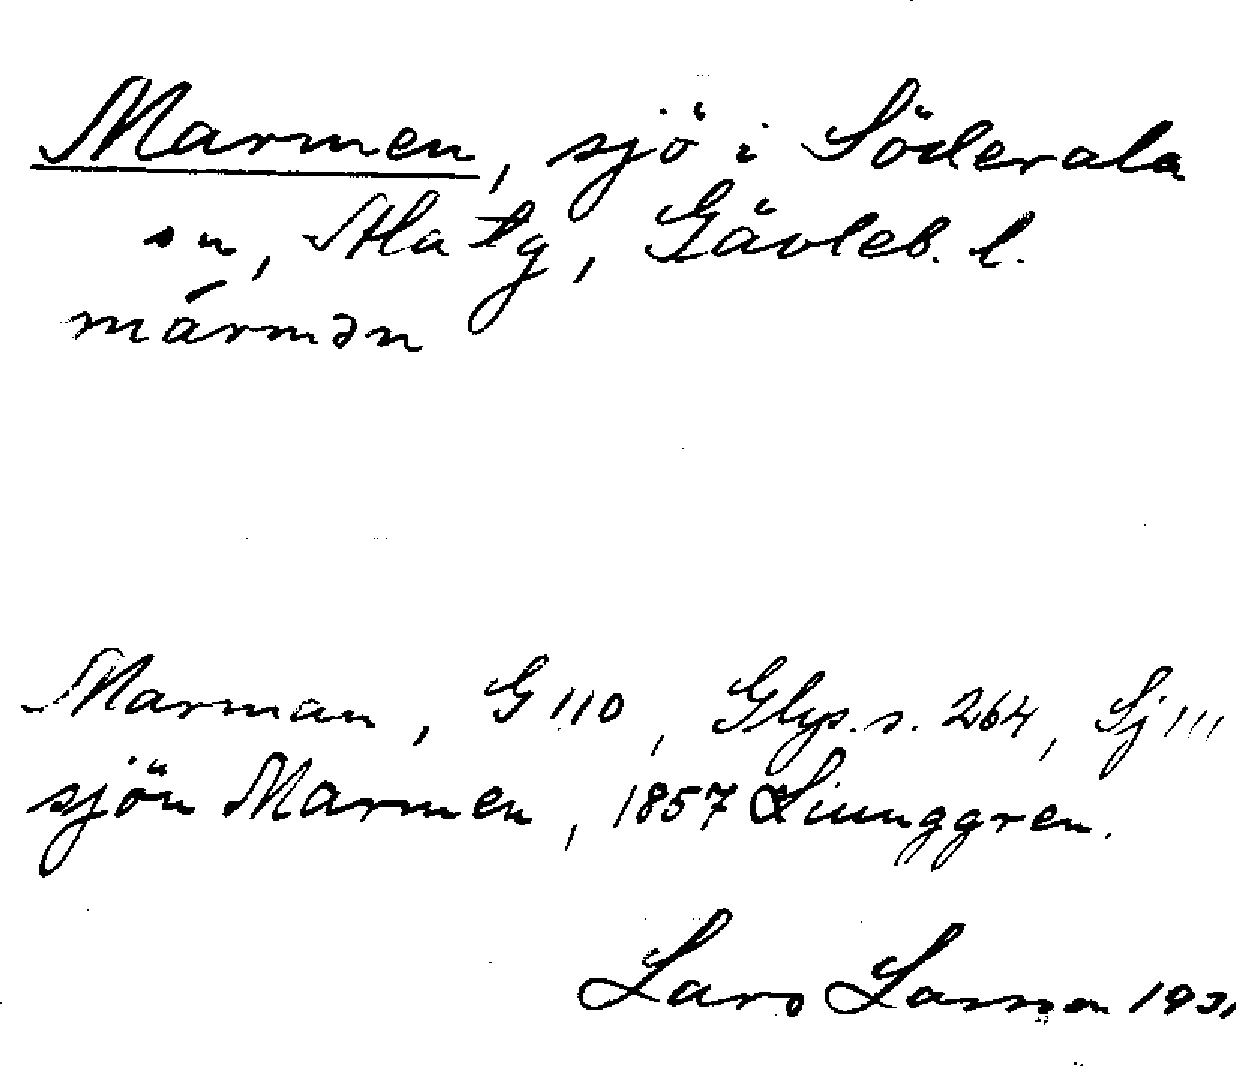 Marmen, sjö i Söderala
sn, Ala tg, Gävleb. l.
mármən
Marman, G 110, Glys. s. 264, Sj 111
sjön Marmen, 1857 Liunggren.
Lars Larsson 1931